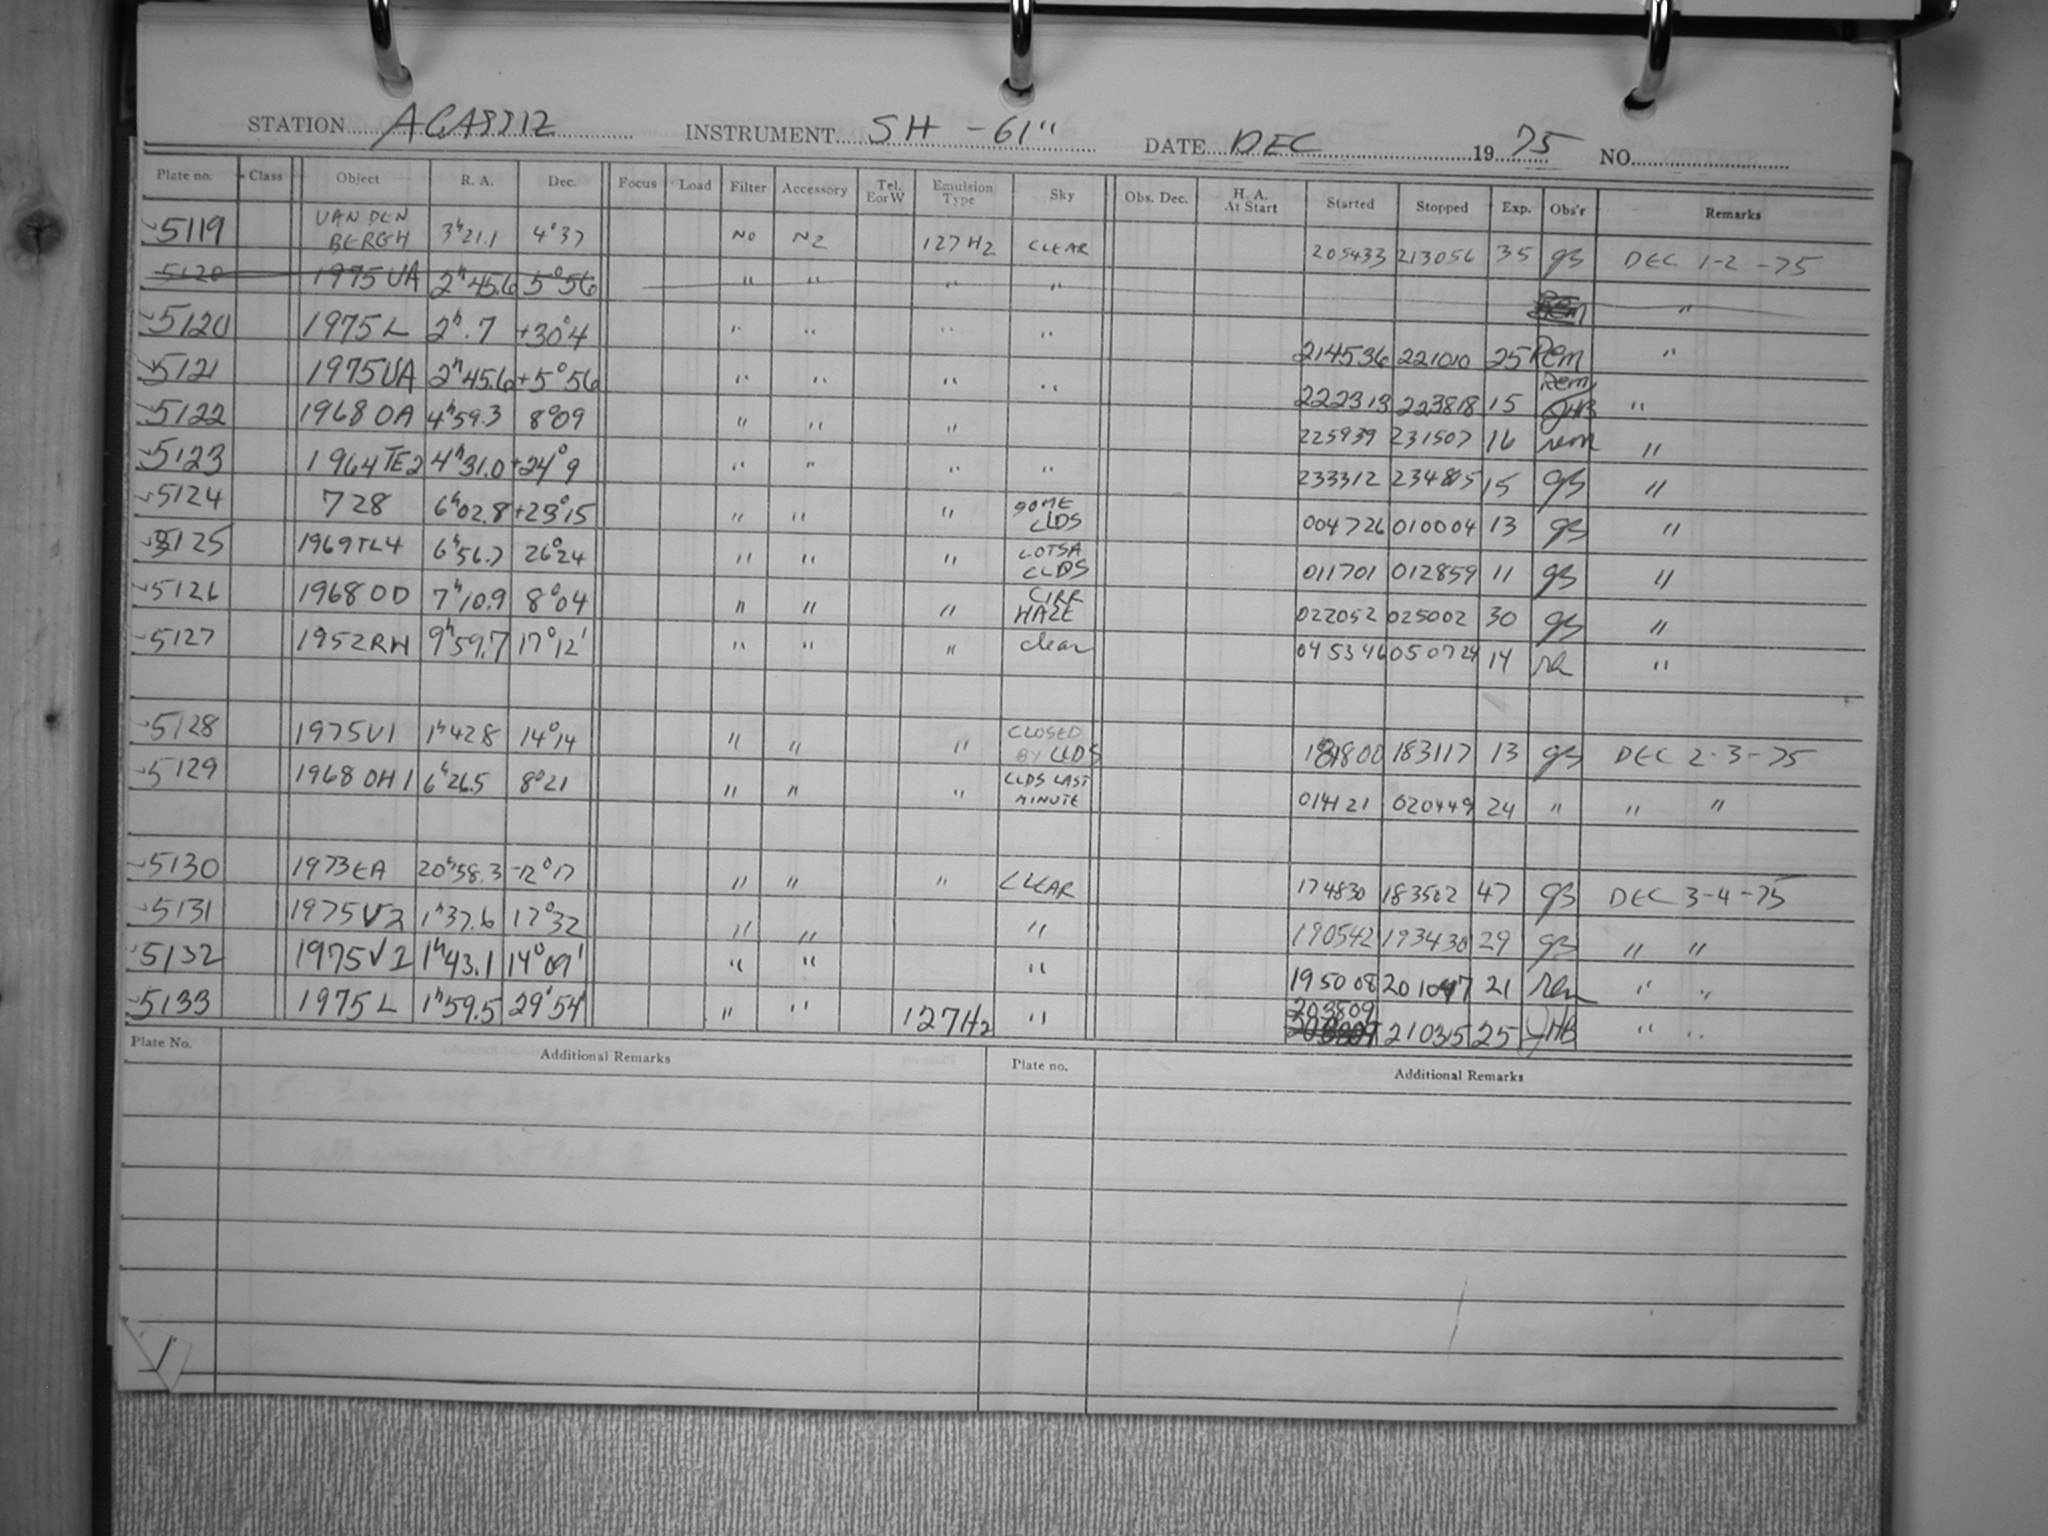 STATION AGASSIZ INSTRUMENT SH - 61" DATE DEC 19 75 NO.
Plate no. Class Object R. A. Dec. Focus Load Filter Accessory Tel. EorW Emulsion Type Sky Obs. Dec. H. A. At Start Started Stopped Exp. Obs'r Remarks
5119 VAN DEN BERGH 3h21.1 4°37 NO N2 127H2 CLEAR 205433 213056 35 gs DEC 1-2-75
5120 1975 UA 2h45.6 5°56 " " " " "
5120 1975 L 2h.7 +30°4 " " " " 214536 221010 25 Rem "
5121 1975 UA 2h45.6 +5°56 " " " " 222313 223818 15 Rem JHB "
5122 1968 OA 4h59.3 8°09 " " " 225939 231507 16 rem "
5123 1964 TE2 4h31.0 +24°9 " " " " 233312 234815 15 gs "
5124 728 6h02.8 +23°15 " " " SOME CLDS 004726 010004 13 gs "
5125 1969 TL4 6h56.7 26°24 " " " LOTSA CLDS 011701 012859 11 gs "
5126 1968 OD 7h10.9 8°04 " " " CIRR HAZE 022052 025002 30 gs "
5127 1952 RH 9h59.7 17°12' " " " clear 045346 050724 14 "
5128 1975 V1 1h42.8 14°14 " " " CLOSED BY CLDS 181800 183117 13 gs DEC 2-3-75
5129 1968 OH1 6h26.5 8°21 " " " CLDS LAST MINUTE 014121 020449 24 " " "
5130 1973 EA 20h58.3 -12°17 " " " CLEAR 174830 183502 47 gs DEC 3-4-75
5131 1975 V2 1h37.6 17°32 " " " 190542 193430 29 gs " "
5132 1975 V1 1h43.1 14°09' " " " 195008 201047 21 rem " "
5133 1975 L 1h59.5 29°54' " " 127H2 " 203809 210315 25 JHB " "
Plate No. Additional Remarks Plate no. Additional Remarks